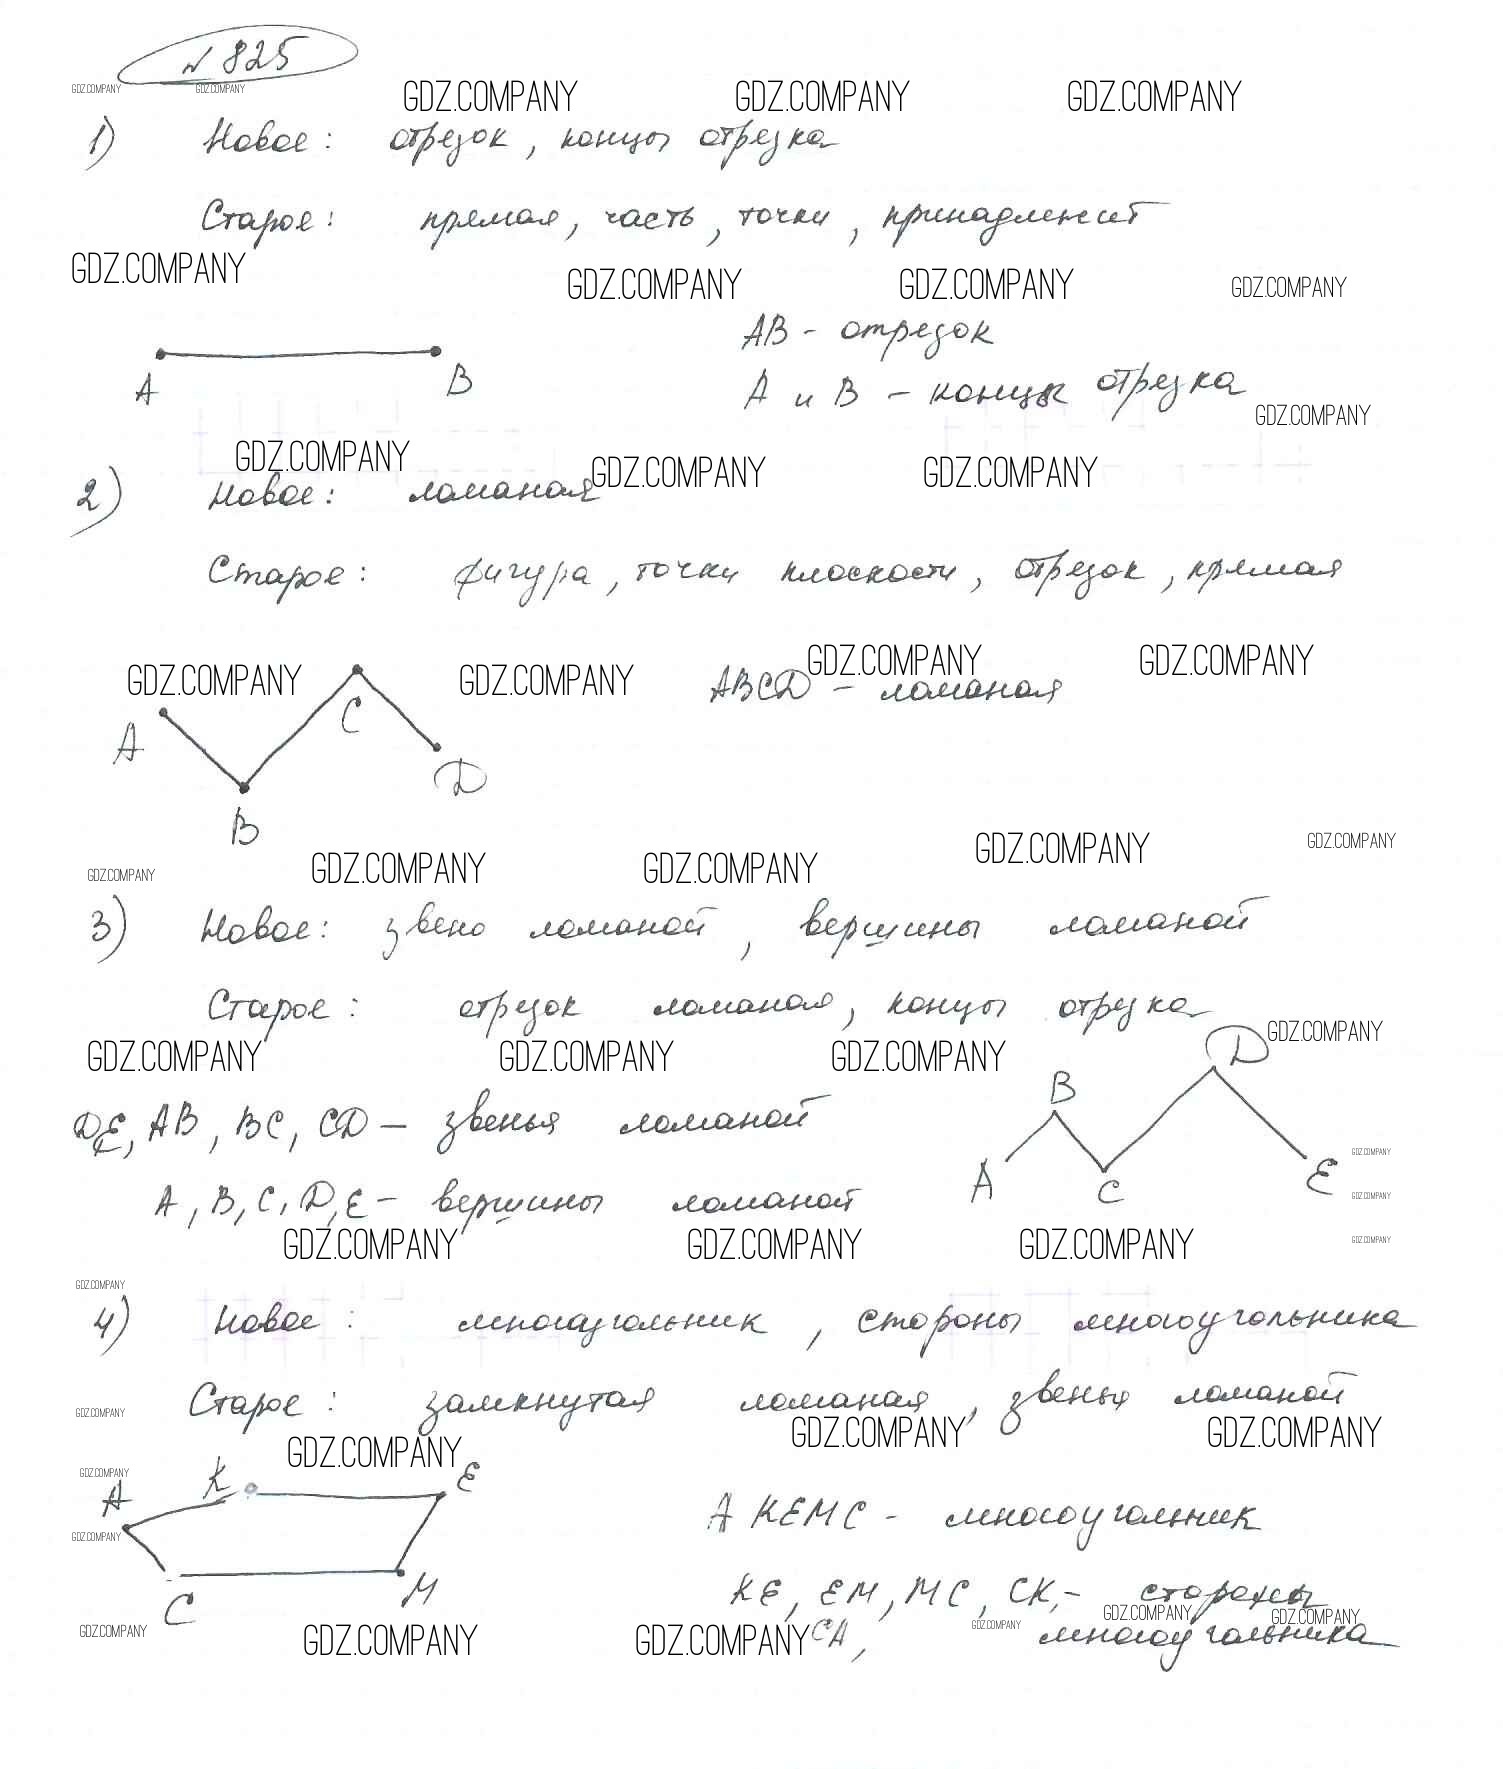 № 825
GDZ.COMPANY GDZ.COMPANY GDZ.COMPANY GDZ.COMPANY GDZ.COMPANY
1) Новое: отрезок, концы отрезка
Старое: прямая, часть, точки, принадлежит
GDZ.COMPANY GDZ.COMPANY GDZ.COMPANY GDZ.COMPANY
AB - отрезок
A B
A и B - концы отрезка
GDZ.COMPANY
GDZ.COMPANY GDZ.COMPANY GDZ.COMPANY
2) Новое: ломаная
Старое: фигура, точки плоскости, отрезок, прямая
GDZ.COMPANY GDZ.COMPANY GDZ.COMPANY GDZ.COMPANY
ABCD - ломаная
A B C D
GDZ.COMPANY GDZ.COMPANY GDZ.COMPANY GDZ.COMPANY GDZ.COMPANY
3) Новое: звено ломаной, вершины ломаной
Старое: отрезок ломаная, концы отрезка
GDZ.COMPANY GDZ.COMPANY GDZ.COMPANY GDZ.COMPANY
DE, AB, BC, CD - звенья ломаной
A B C D E
GDZ.COMPANY
A, B, C, D, E - вершины ломаной
GDZ.COMPANY
GDZ.COMPANY GDZ.COMPANY GDZ.COMPANY GDZ.COMPANY
GDZ.COMPANY
4) Новое: многоугольник, стороны многоугольника
Старое: замкнутая ломаная, звенья ломаной
GDZ.COMPANY
GDZ.COMPANY GDZ.COMPANY GDZ.COMPANY
GDZ.COMPANY
A K E
AKEMC - многоугольник
GDZ.COMPANY
C M
KE, EM, MC, CK, - стороны
GDZ.COMPANY GDZ.COMPANY
GDZ.COMPANY GDZ.COMPANY GDZ.COMPANY CA, GDZ.COMPANY многоугольника